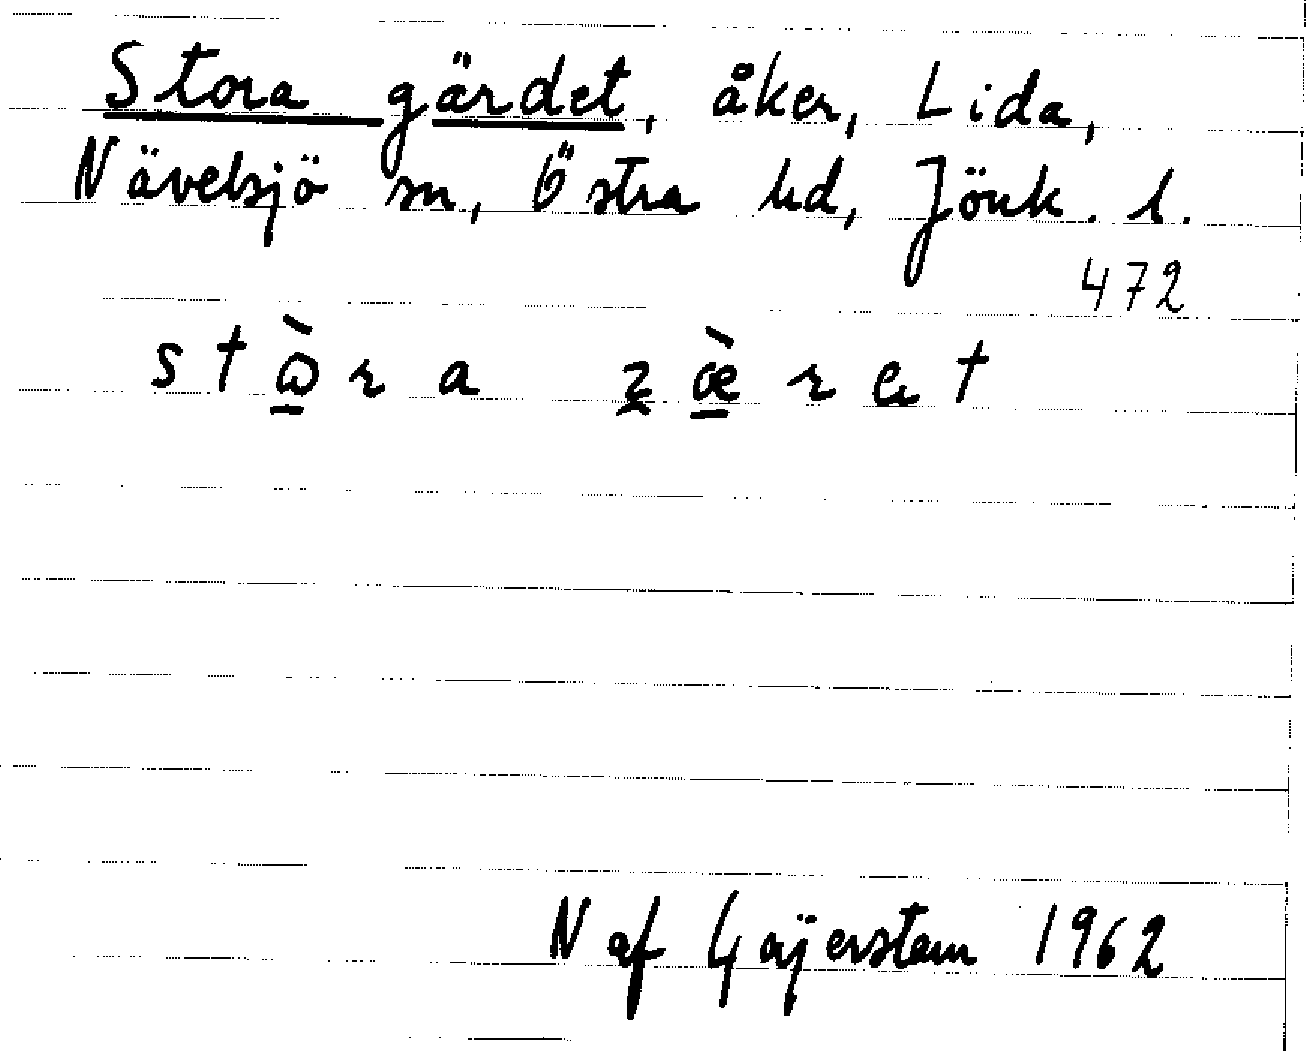 Stora gärdet, åker, Lida,
Nävelsjö sn, Östra hd, Jönk. l.
472
N af Gäijerstam 1962